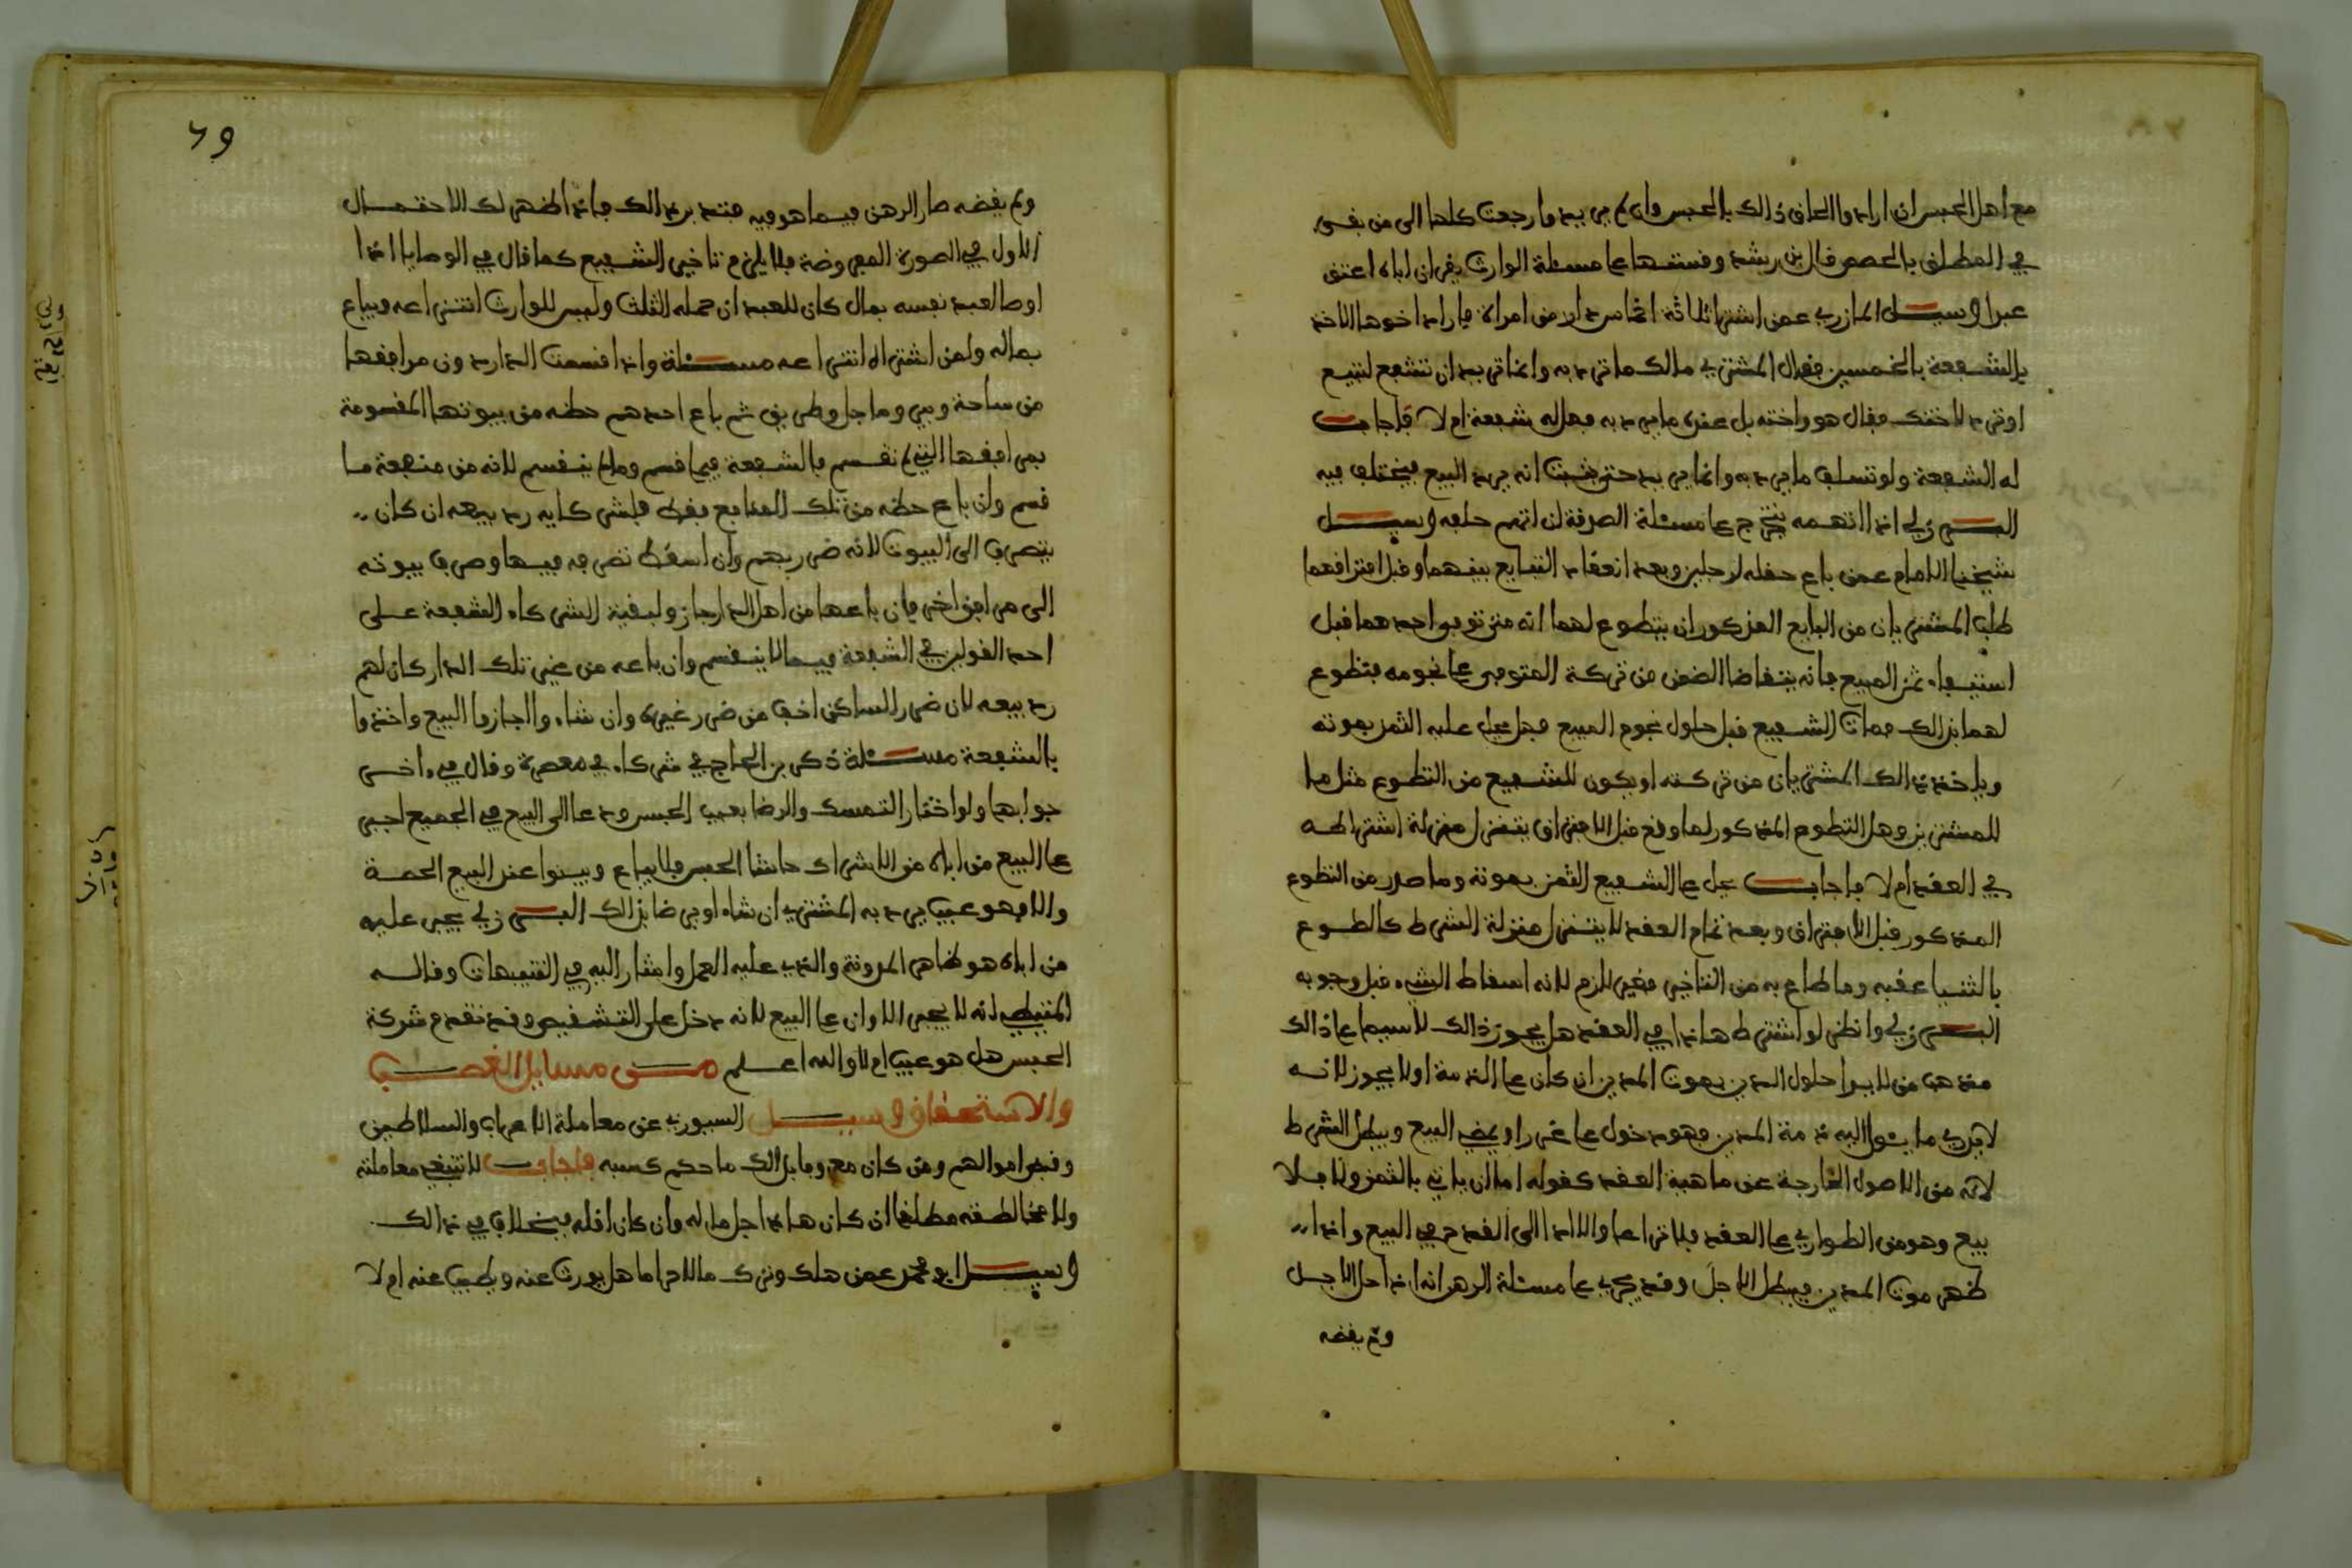 مع اهل الحبس ان ارادوا الحاق ذالك بالحبس وان لم يريدوا رجعت كلها الى من بقي
في المطلق بالحصص قال بن رشد وقستها على مسئلة الوارث يقر ان اباه اعتق
عبدا وسيل المازري عمن اشترا ثلاثة اخماس دار من امراة فاراد اخوها الاخذ
بالشفعة بالخمسين فقال المشتري مالك ما تريد به وانما تريد ان تشفع لتبيع
او ترد لاختك فقال هو واخته بل عندي ما يريد به فهل له شفعة ام لا فاجاب
له الشفعة ولو تسلف ما يريد به وانما يريد حتى يثبت انه يريد البيع فيختلف فيه
البرزلي اذا اتهمه يتخرج على مسئلة الصرفة لان اتهم حلفه وسيل
شيخنا الامام عمن باع حقله لرجلين وبعد انعقاد التبايع بينهما وقبل افتراقهما
طلب المشتريان من البايع المذكور ان يتطوع لهما انه متى توفي احدهما قبل
استيفاء ثمن المبيع فانه يتقاضا الثمن من تركة المتوفى على نجومه فتطوع
لهما بذالك فمات الشفيع قبل حلول نجوم المبيع فهل يحل عليه الثمن بموته
وياخذ ذالك المشتريان من تركته او يكون للشفيع من التطوع مثل ما
للمشتريين وهل التطوع المذكور لما وقع قبل الافتراق يتنزل منزلة اشتراطه
في العقد ام لا فاجاب يحل على الشفيع الثمن بموته وما صدر من التطوع
المذكور قبل الافتراق وبعد تمام العقد لا يتنزل منزلة الشرط كالطوع
بالثنيا عقبه وما طاع به من التاخير فغير لازم لانه اسقاط الشيء قبل وجوبه
البرزلي وانظر لو اشترط هاذا في العقد هل يجوز ذالك لا سيما على ذالك
مذهب من لا يرا حلول الدين بموت المدين ان كان على الذمة او لا يجوز لانه
لا يدري ما يئول اليه ذمة المدين فهو دخول على غرر او يمضي البيع ويبطل الشرط
لانه من الاصول الخارجة عن ماهية العقد كقوله اما ان ياتي بالثمن والا فلا
بيع وهو من الطواري على العقد فلا تراعا والا ادا الى القدح في البيع واذا
ظهر موت المدين فيبطل الاجل وقد يجري على مسئلة الرهن انه اذا حل الاجل
ولم يقضه
٦٩
ولم يقضه صار الرهن فيما هو فيه فتدبر ذالك فاذا ظهر لك الاحتمال
الاول في الصورة المفروضة فلا يلزم تاخير الشفيع كما قال في الوصايا اذا
اوصا لعبد نفسه بمال كان للعبد ان حمله الثلث وليس للوارث انتزاعه ويباع
بماله ولمن اشتراه انتزاعه مسئلة واذا قسمت الدار دون مرافقها
من ساحة وبير وماجل وطريق ثم باع احدهم حظه من بيوتها المقسومة
بمرافقها التي لم تقسم فالشفعة فيما قسم وما لم ينقسم لانه من منفعة ما
قسم وان باع حظه من تلك المنافع فقط فلشركايه رد بيعه ان كان
يتصرف الى البيوت لانه ضرر بهم وان اسقط تصرفه فيها وصرف بيوته
الى مرافق اخر فان باعها من اهل الدار جاز ولبقية الشركاء الشفعة على
احد القولين في الشفعة فيما لا ينقسم وان باعه من غير تلك الدار كان لهم
رد بيعه لان ضرر الساكن اخف من ضرر غيره وان شاءوا اجازوا البيع واخذوا
بالشفعة مسئلة ذكر بن الحاج في شركاء في معصرة وقال في اخر
جوابها ولو اختار التمسك والرضا بعيب الحبس ودعا الى البيع في الجميع اجبر
على البيع من اباه من الاشراك حاشا الحبس فلا يباع ويبينوا عند البيع الحصة
والا فهو عيب يرد به المشتري ان شاء او يرضا بذالك البرزلي يجبر عليه
من اباه هو ظاهر المدونة والذي عليه العمل واشار اليه في التنبيهات وقال
المتيطي انه لا يجبر الاوان على البيع لانه دخل على التشقيص وقد تقدم شركة
الحبس هل هو عيب ام لا والله اعلم من مسايل الغصب
والاستحقاق وسيل السيوري عن معاملة الاعراب والسلاطين
وقبض اموالهم ومن كان معروفا بذالك ما حكم كسبه فاجاب لا تنبغي معاملته
ولا مخالطته مطلقا ان كان هاذا اجل ماله وان كان اقله فيختلف في ذالك
وسيل ابو محمد عمن هلك وترك مالا حراما هل يورث عنه ويطيب عنه ام لا